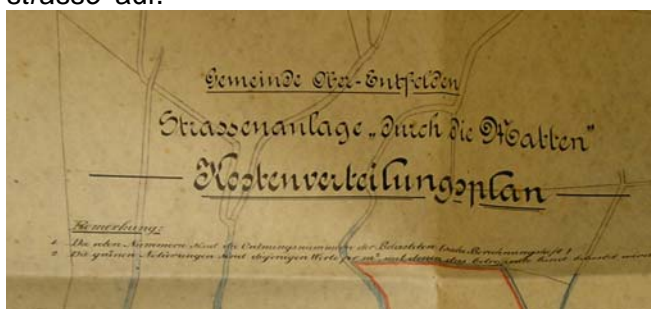 strasse auf.
Gemeinde Ober-Entfelden
Strassenanlage „durch die Matten"
Kostenverteilungsplan
Bemerkung:
1. Die roten Nummern sind die Ordnungsnummern der Beteiligten (siehe Berechnungsheft)
2. Die grünen Notierungen sind diejenigen Werte pr. m² mit denen das betreffende